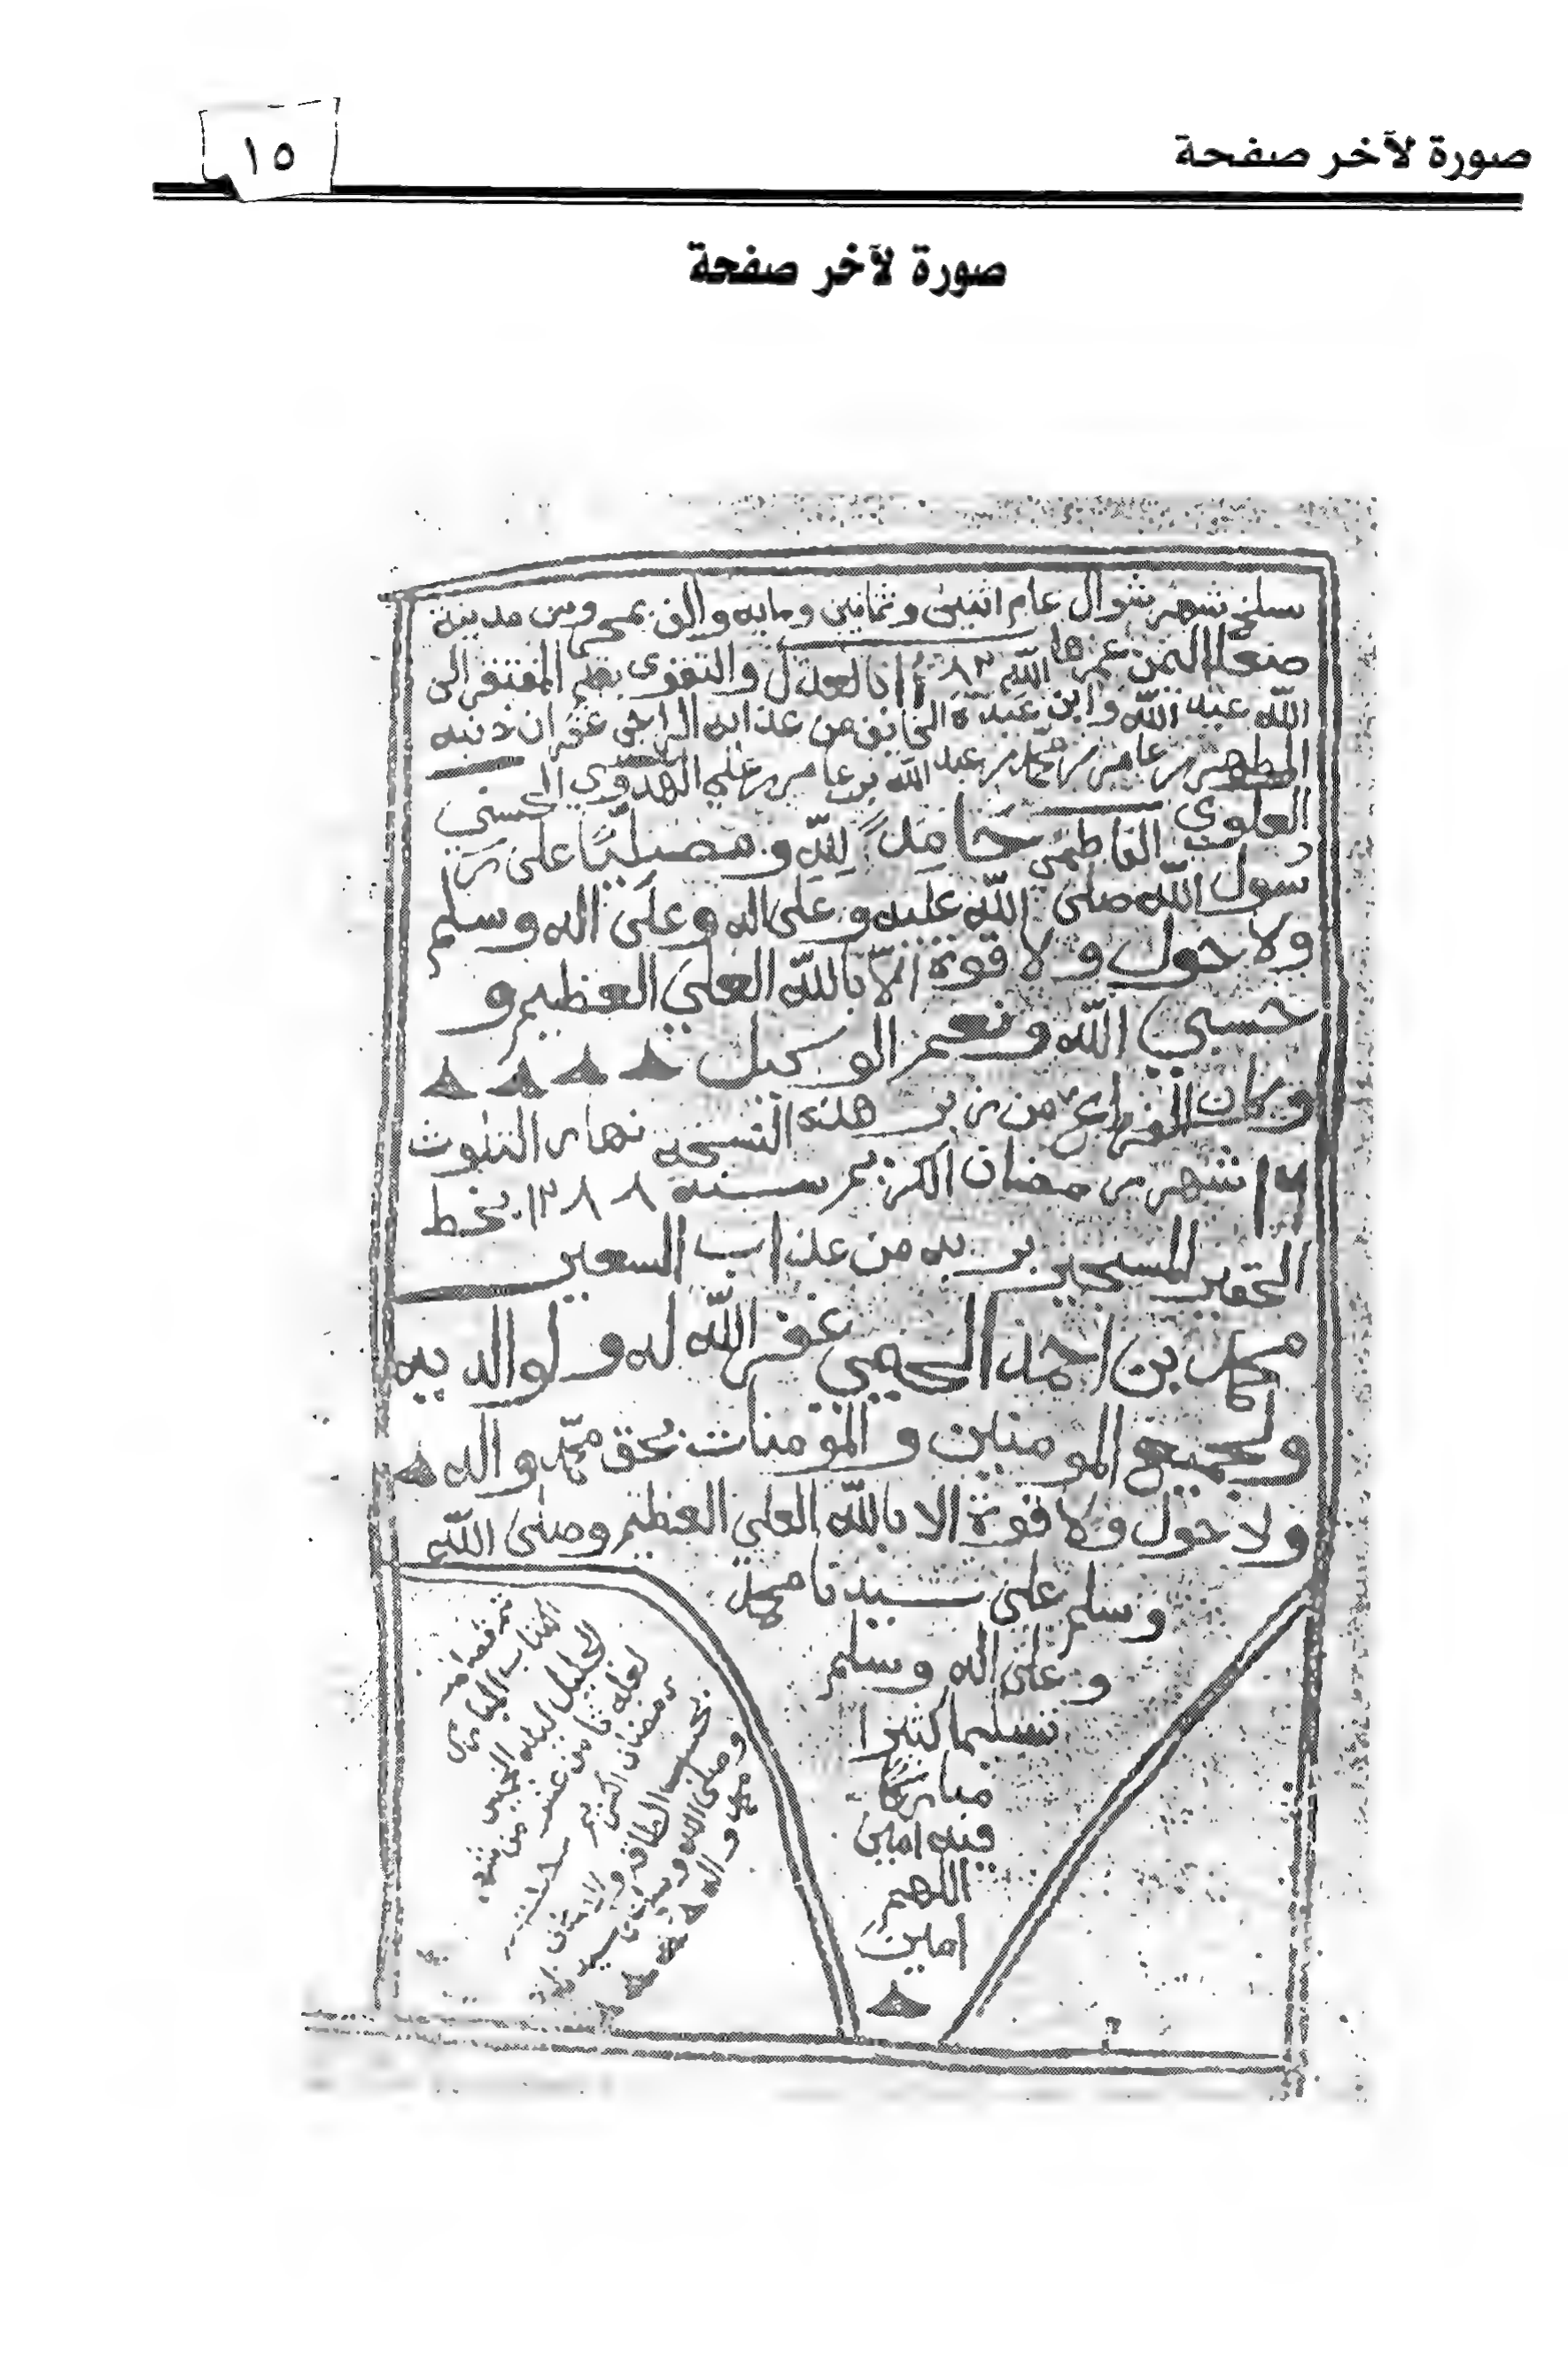 صورة لآخر صفحة
١٥
صورة لآخر صفحة
سلخ شهر شوال عام اثنين وثمانين ومايه والف بمحروس مدينة
صنعا اليمن عمرها الله بالعدل والتقوى بقلم المفتقر الى
الله عبد الله وابن عبده الخايف من عذابه الراجي غفران ذنبه
المطهر بن عامر بن محمد بن عبد الله بن عامر بن علي الهدوي الحسني
العلوي الفاطمي حامداً لله ومصلياً على ر
سول الله صلى الله عليه وعلى اله وعلى اله وسلم
ولا حول ولا قوة الا بالله العلي العظيم و
حسبي الله ونعم الوكيل ه ه ه ه
وكان الفراغ من زبر هذه النسخة نهار الثلوث
١٦ شهر رمضان الكريم سنة ١٣٨٨ بخط
الحقير المستجير بربه من عذاب السعير
محمد بن احمد غفر الله له ولوالديه
ولجميع المومنين والمؤمنات بحق محمد واله ه
ولا حول ولا قوة الا بالله العلي العظيم وصلى الله
وسلم على سيدنا محمد
وعلى اله وسلم
تسليما كثيرا
مباركا
فيه امين
اللهم
امين
ه
الكتاب
الجليل ليله
لعله ثامن عشر
رمضان الكريم
بحسب الطاقه والامكان
وصلى الله وسلم على سيدنا
محمد واله